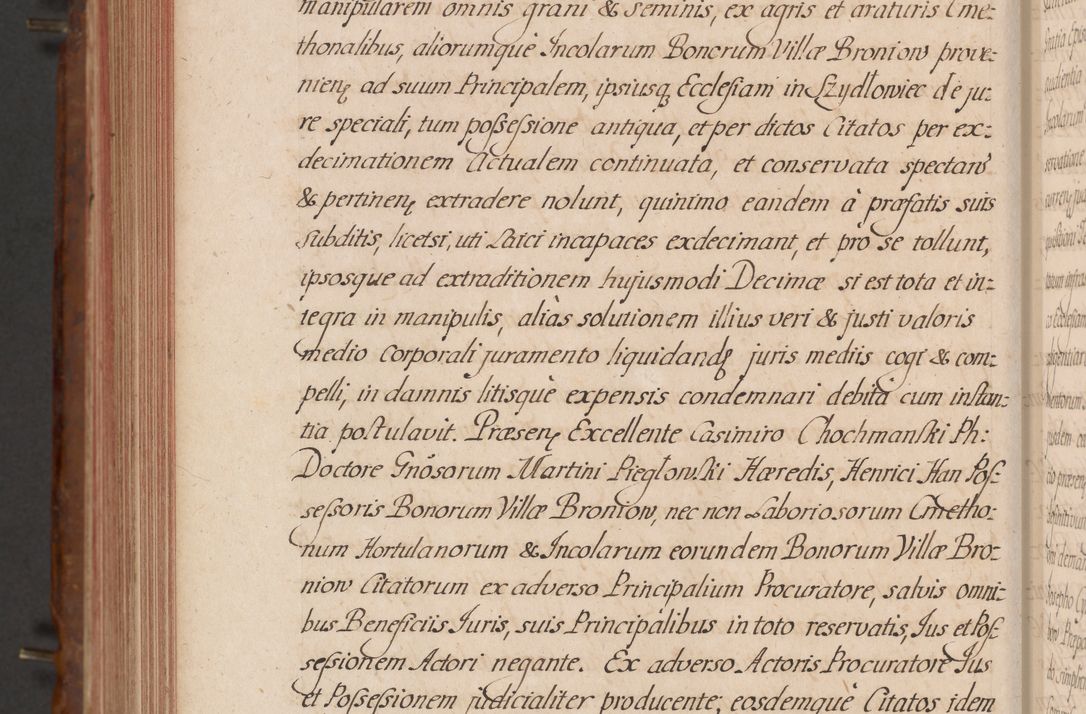 manipularem omnis grani & seminis, ex agris et araturis Cme:
thonalibus, aliorumquè Incolarum Bonorum Villæ Broniow prove:
nienȩ ad suum Principalem, ipsiusq₃ Ecclesiam in Szydłowiec de ju:
re speciali, tum poßeſsione antiqua, et per dictos Citatos per ex:
decimationem Actualem continuata, et conservata spectans
& pertinenȩ extradere nolunt, quinimo eandem à præfatis suis
Subditis, licetsi, uti Laici incapaces exdecimant, et pro se tollunt,
ipsosque ad extraditionem hujusmodi Decimæ si est tota et in:
tegra in manipulis, aliàs solutionem illius veri & justi valoris
medio Corporali juramento liquidandȩ juris mediis cogi & com:
pelli, in damnis litisquè expensis condemnari debitâ cum inſtan:
tia poſtulavit. Præsenȩ Excellente Casimiro Chochmanſki Ph:
Doctore Gnôsorum Martini Piegłowſki Hæredis, Henrici Han Poſ:
seſsoris Bonorum Villæ Broniow, nec non Laboriosorum Cmetho:
num Hortulanorum & Incolarum eorundem Bonorum Villæ Bro:
niow Citatorum ex adverso Principalium Procuratore, salvis omni:
bus Beneficiis Juris, suis Principalibus in toto reservatis, Jus et Poſ:
seſsionem Actori negante. Ex adverso Actoris Procuratore Jus
et Poſseſsionem judicialiter producente; eosdemquè Citatos idem